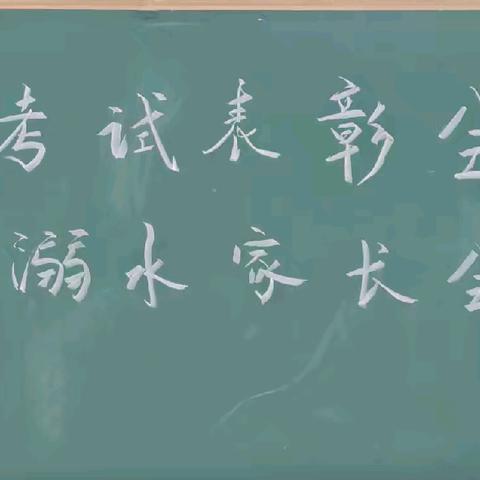 考试表彰会
溺水家长会